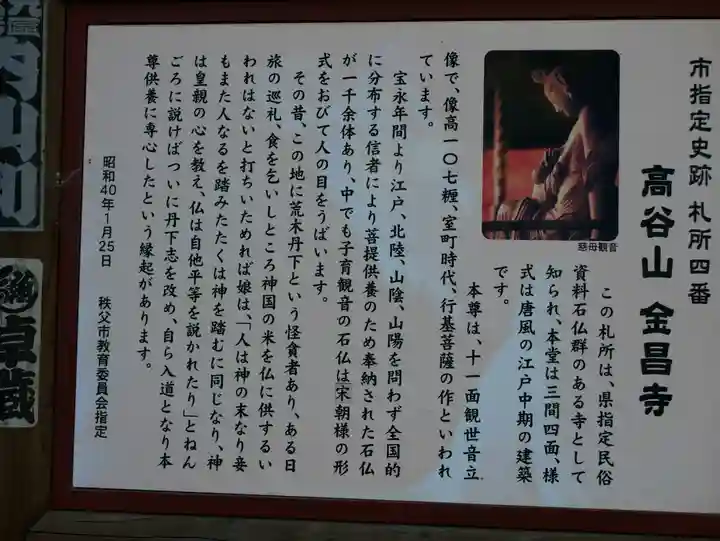 市指定史跡 札所四番
高谷山 金昌寺
この札所は、県指定民俗
資料石仏群のある寺として
知られ、本堂は三間四面、様
式は唐風の江戸中期の建築
です。
本尊は、十一面観世音立
像で、像高一〇七糎、室町時代、行基菩薩の作といわれ
ています。
宝永年間より江戸、北陸、山陰、山陽を問わず全国的
に分布する信者により菩提供養のため奉納された石仏
が一千余体あり、中でも子育観音の石仏は宋朝様の形
式をおびて人の目をうばいます。
その昔、この地に荒木丹下という怪貪者あり、ある日
旅の巡礼、食を乞いしところ神国の米を仏に供するい
われはないと打ちいためれば娘は、「人は神の末なり妾
もまた人なるを踏みたたくは神を踏むに同じなり、神
は皇親の心を教え、仏は自他平等を説かれたり」とねん
ごろに説けばついに丹下志を改め、自ら入道となり本
尊供養に専心したという縁起があります。
昭和40年1月25日 秩父市教育委員会指定
慈母観音